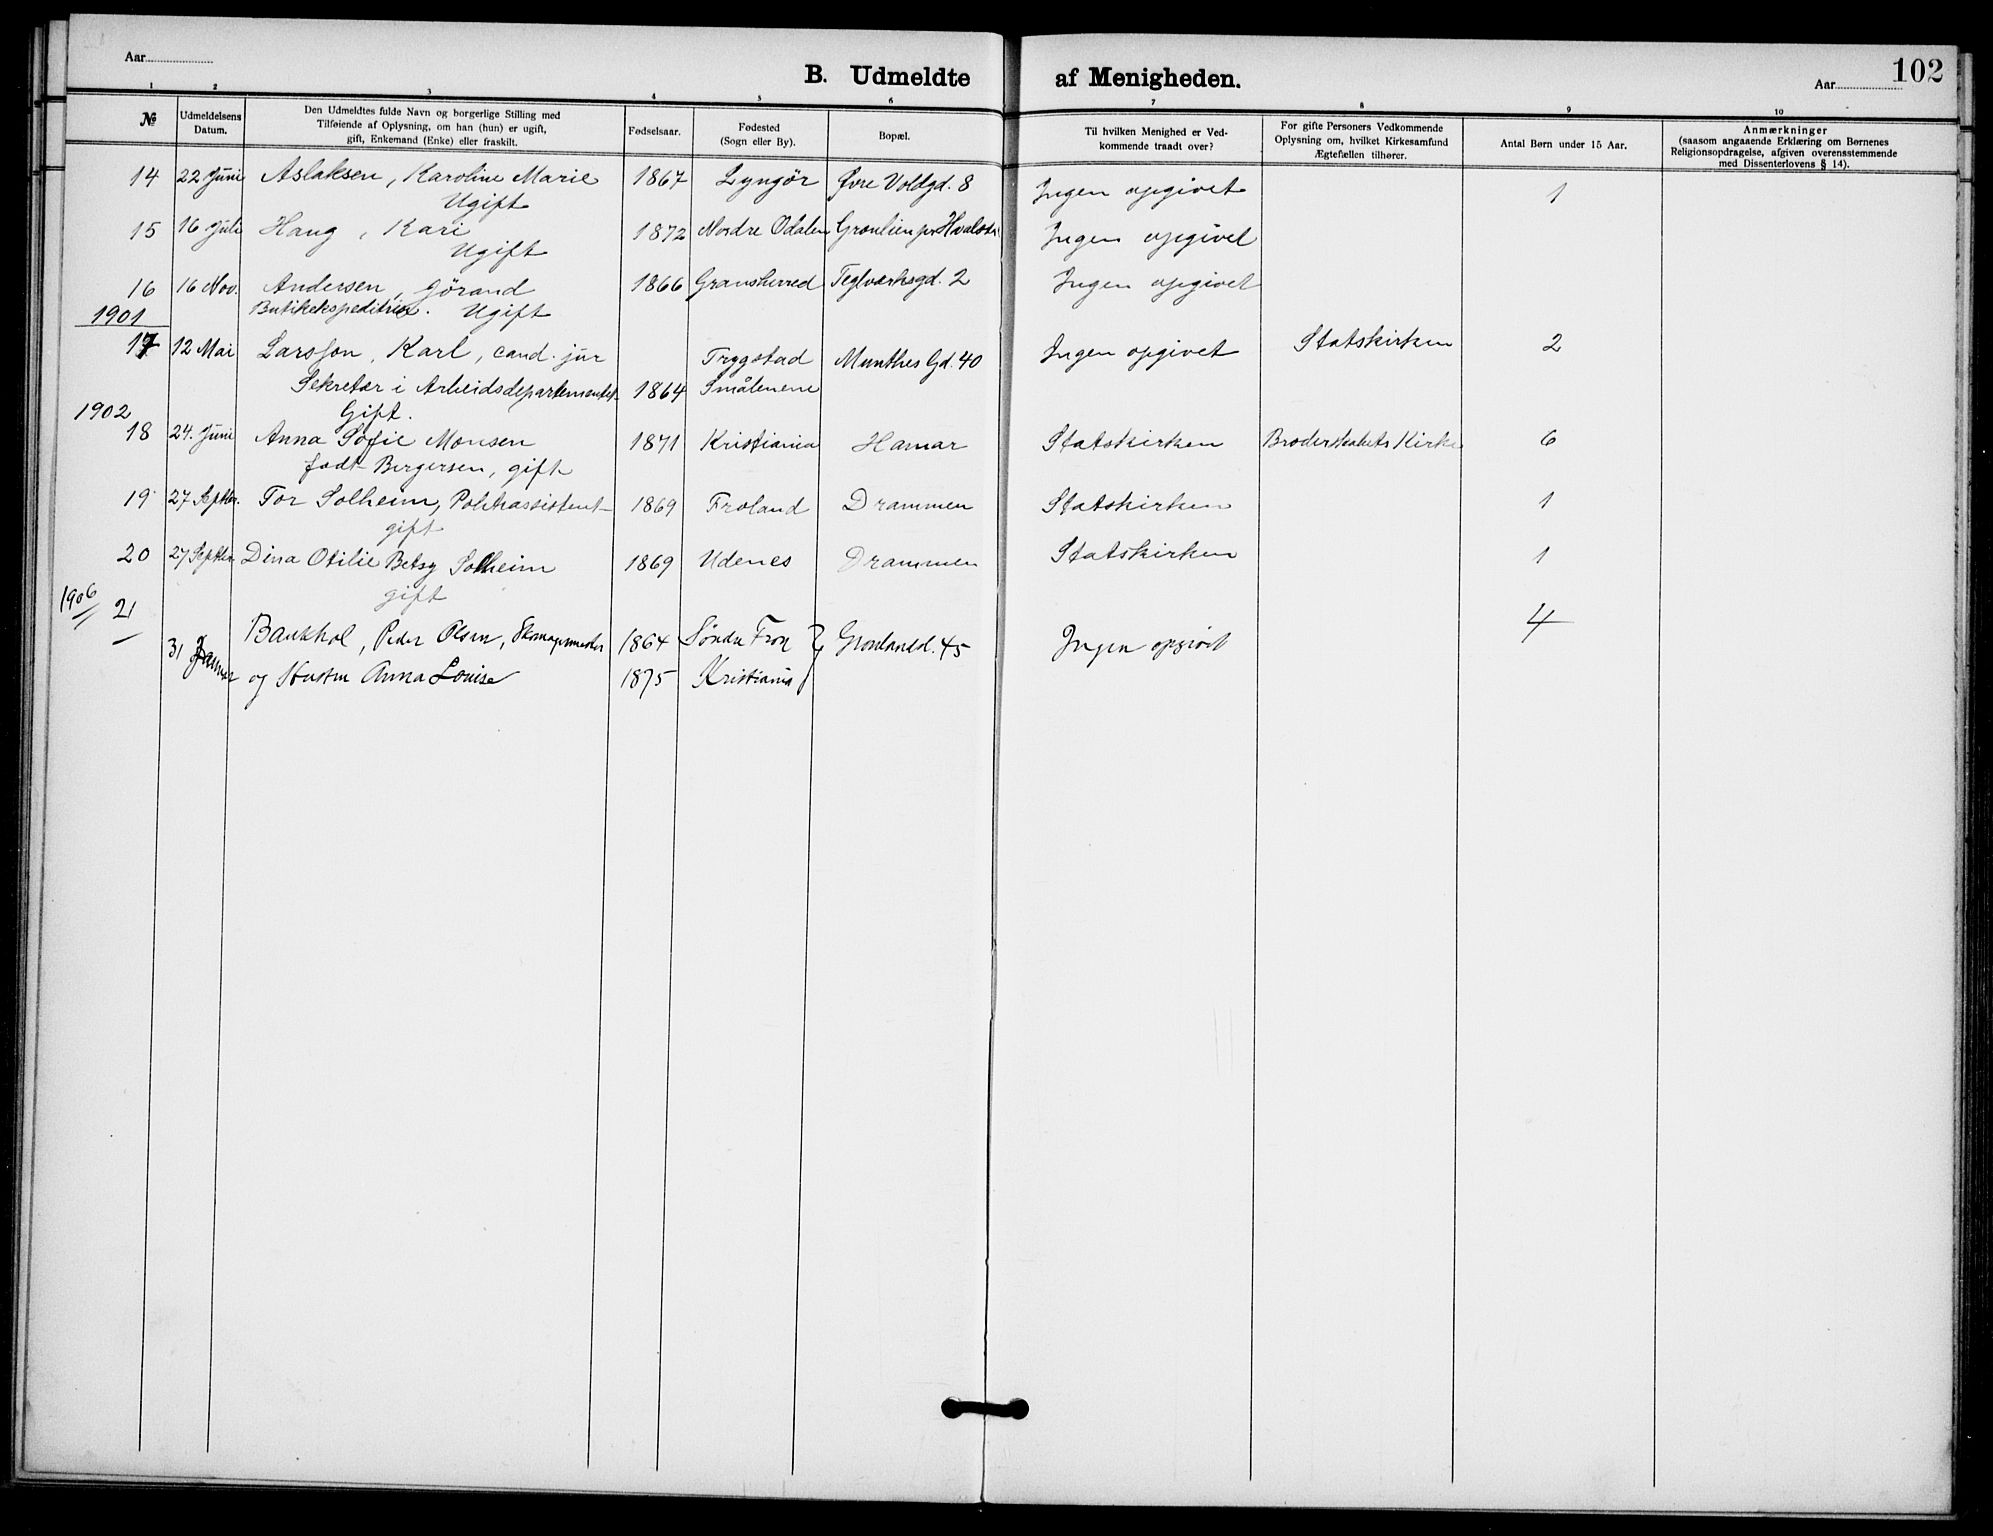 Aar
B. Udmeldte af Menigheden.
Aar 102
1 2 3 4 5 6 7 8 9 10
№
Udmeldelsens Datum.
Den Udmeldtes fulde Navn og borgerlige Stilling med
Tilføiende af Oplysning, om han (hun) er ugift,
gift, Enkemand (Enke) eller fraskilt.
Fødselsaar.
Fødested
(Sogn eller By).
Bopæl.
Til hvilken Menighed er Ved-
kommende traadt over?
For gifte Personers Vedkommende
Oplysning om, hvilket Kirkesamfund
Ægtefællen tilhører.
Antal Børn under 15 Aar.
Anmærkninger
(saasom angaaende Erklæring om Børnenes
Religionsopdragelse, afgiven overensstemmende
med Dissenterlovens § 14).
14 22 Juni Aslaksen, Karoline Marie 1867 Lyngör Øvre Voldgd. 8 Ingen opgivet 1
Ugift
15 16 Juli Haug, Kari 1872 Nordre Odalen Grønlien pr Hvalstad Ingen opgivet
Ugift
16 16 Nov. Andersen, Jörand 1866 Gransherred Teglværksgd. 2 Ingen opgivet
Butikekspeditrice. Ugift
1901
17 12 Mai Larsson, Karl, cand. jur Trygstad Munthes Gd. 40 Ingen opgivet Statskirken 2
Sekretær i Arbeidsdepartementet 1864 Smålenene
Gift.
1902
18 24. Juni Anna Sofie Monsen 1871 Kristiania Hamar Statskirken Broderskabets Kirke 6
født Bergersen, gift
19 27 Septbr. Tor Solheim, Politiassistent 1869 Froland Drammen Statskirken 1
gift
20 27 Septbr Dina Otilie Betsy Solheim 1869 Udenes Drammen Statskirken 1
gift
1906
21 31 Januar Baukhol, Peder Olsen, Skomagermester 1864 Söndre Fron Grønlandsl. 45 Ingen opgivet 4
og Hustru Anna Louise 1875 Kristiania